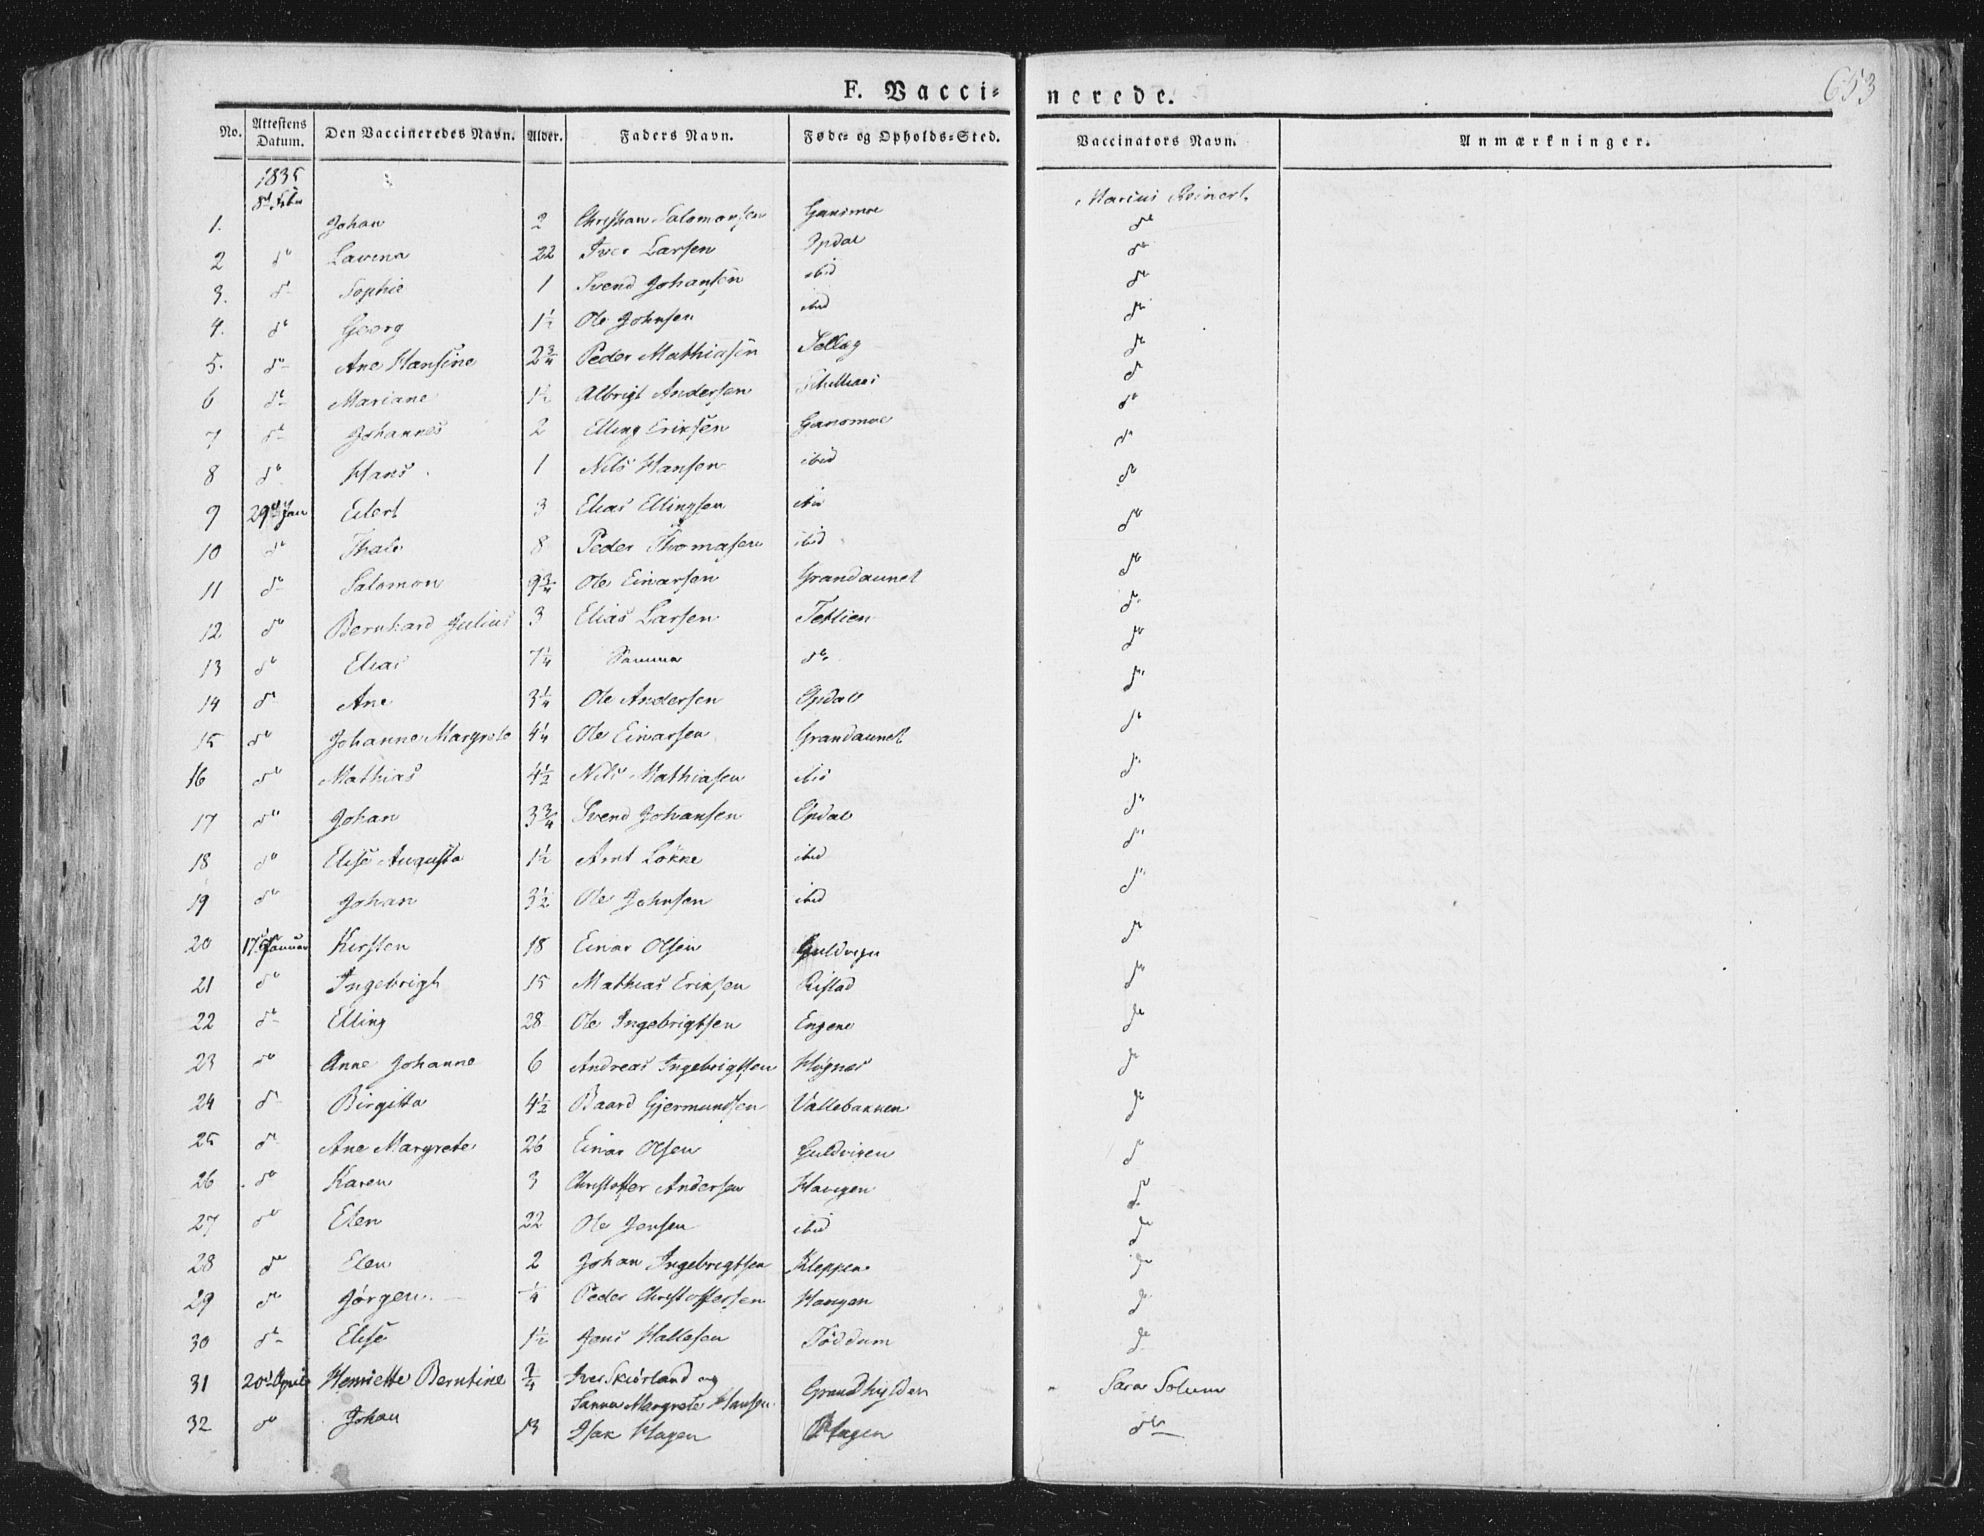 653
F. Vacci= nerede.
No. Attestens Datum. Den Vaccineredes Navn. Alder. Faders Navn. Føde= og Opholds=Sted. Vaccinators Navn. Anmærkninger.
1835
1. 8d Febr Johan 2 Christian Salomonsen Gansmoe Marius Reinert
2 do Lavina 22 Iver Larsen Opdal do
3. do Sophie 1 Svend Johansen ibid do
4. do Georg 1½ Ole Johnsen ibid do
5. do Ane Hansine 2¾ Peder Mathiasen do
6 do Mariane 1½ Albrigt Andersen do
7 do Johannes 2 Elling Eriksen Gansmoe do
8 do Hans 1 Nils Hansen ibid do
9 29d Jan Eilert 3 Elias Ellingsen ibid do
10 do Thale 8 Peder Thomasen ibid do
11 do Salomon 9¾ Ole Einarsen Grandaunet do
12 do Bernhard Julius 3 Elias Larsen Tetlien do
13 do Elias 7¼ Samme do do
14 do Ane 3¼ Ole Andersen Opdal do
15 do Johanne Margrete 4¼ Ole Einarsen Grandaunet do
16 do Mathias 4½ Nils Mathiasen ibid do
17 do Johan 3¾ Svend Johansen Opdal do
18 do Elise Augusta 1½ Arnt Løkke ibid do
19 do Johan 3½ Ole Johnsen ibid do
20 17d Januar Kirsten 18 Einar Olsen Guldvigen do
21 do Ingebrigt 15 Mathias Eriksen Ristad do
22 do Elling 28 Ole Ingebrigtsen Engene do
23 do Anne Johanne 6 Andreas Ingebrigtsen Høgnes do
24 do Birgitta 4½ Baard Gjermundsen Vallebakken do
25 do Ane Margrete 26 Einar Olsen Guldvigen do
26 do Karen 3 Christoffer Andersen Haugen do
27 do Elen 22 Ole Jensen ibid do
28 do Elen 2 Johan Ingebrigtsen Kleppen do
29 do Jørgen ¼ Peder Christoffersen Haugen do
30 do Elise 1½ Jens HallesenFøddum do
31 20d April Henriette Berntine ¾ Iver Skiørland og Sanna Margrete Hansen Grandhylden Sara Solum
32 do Johan 13 Isak Hagen Hagen do